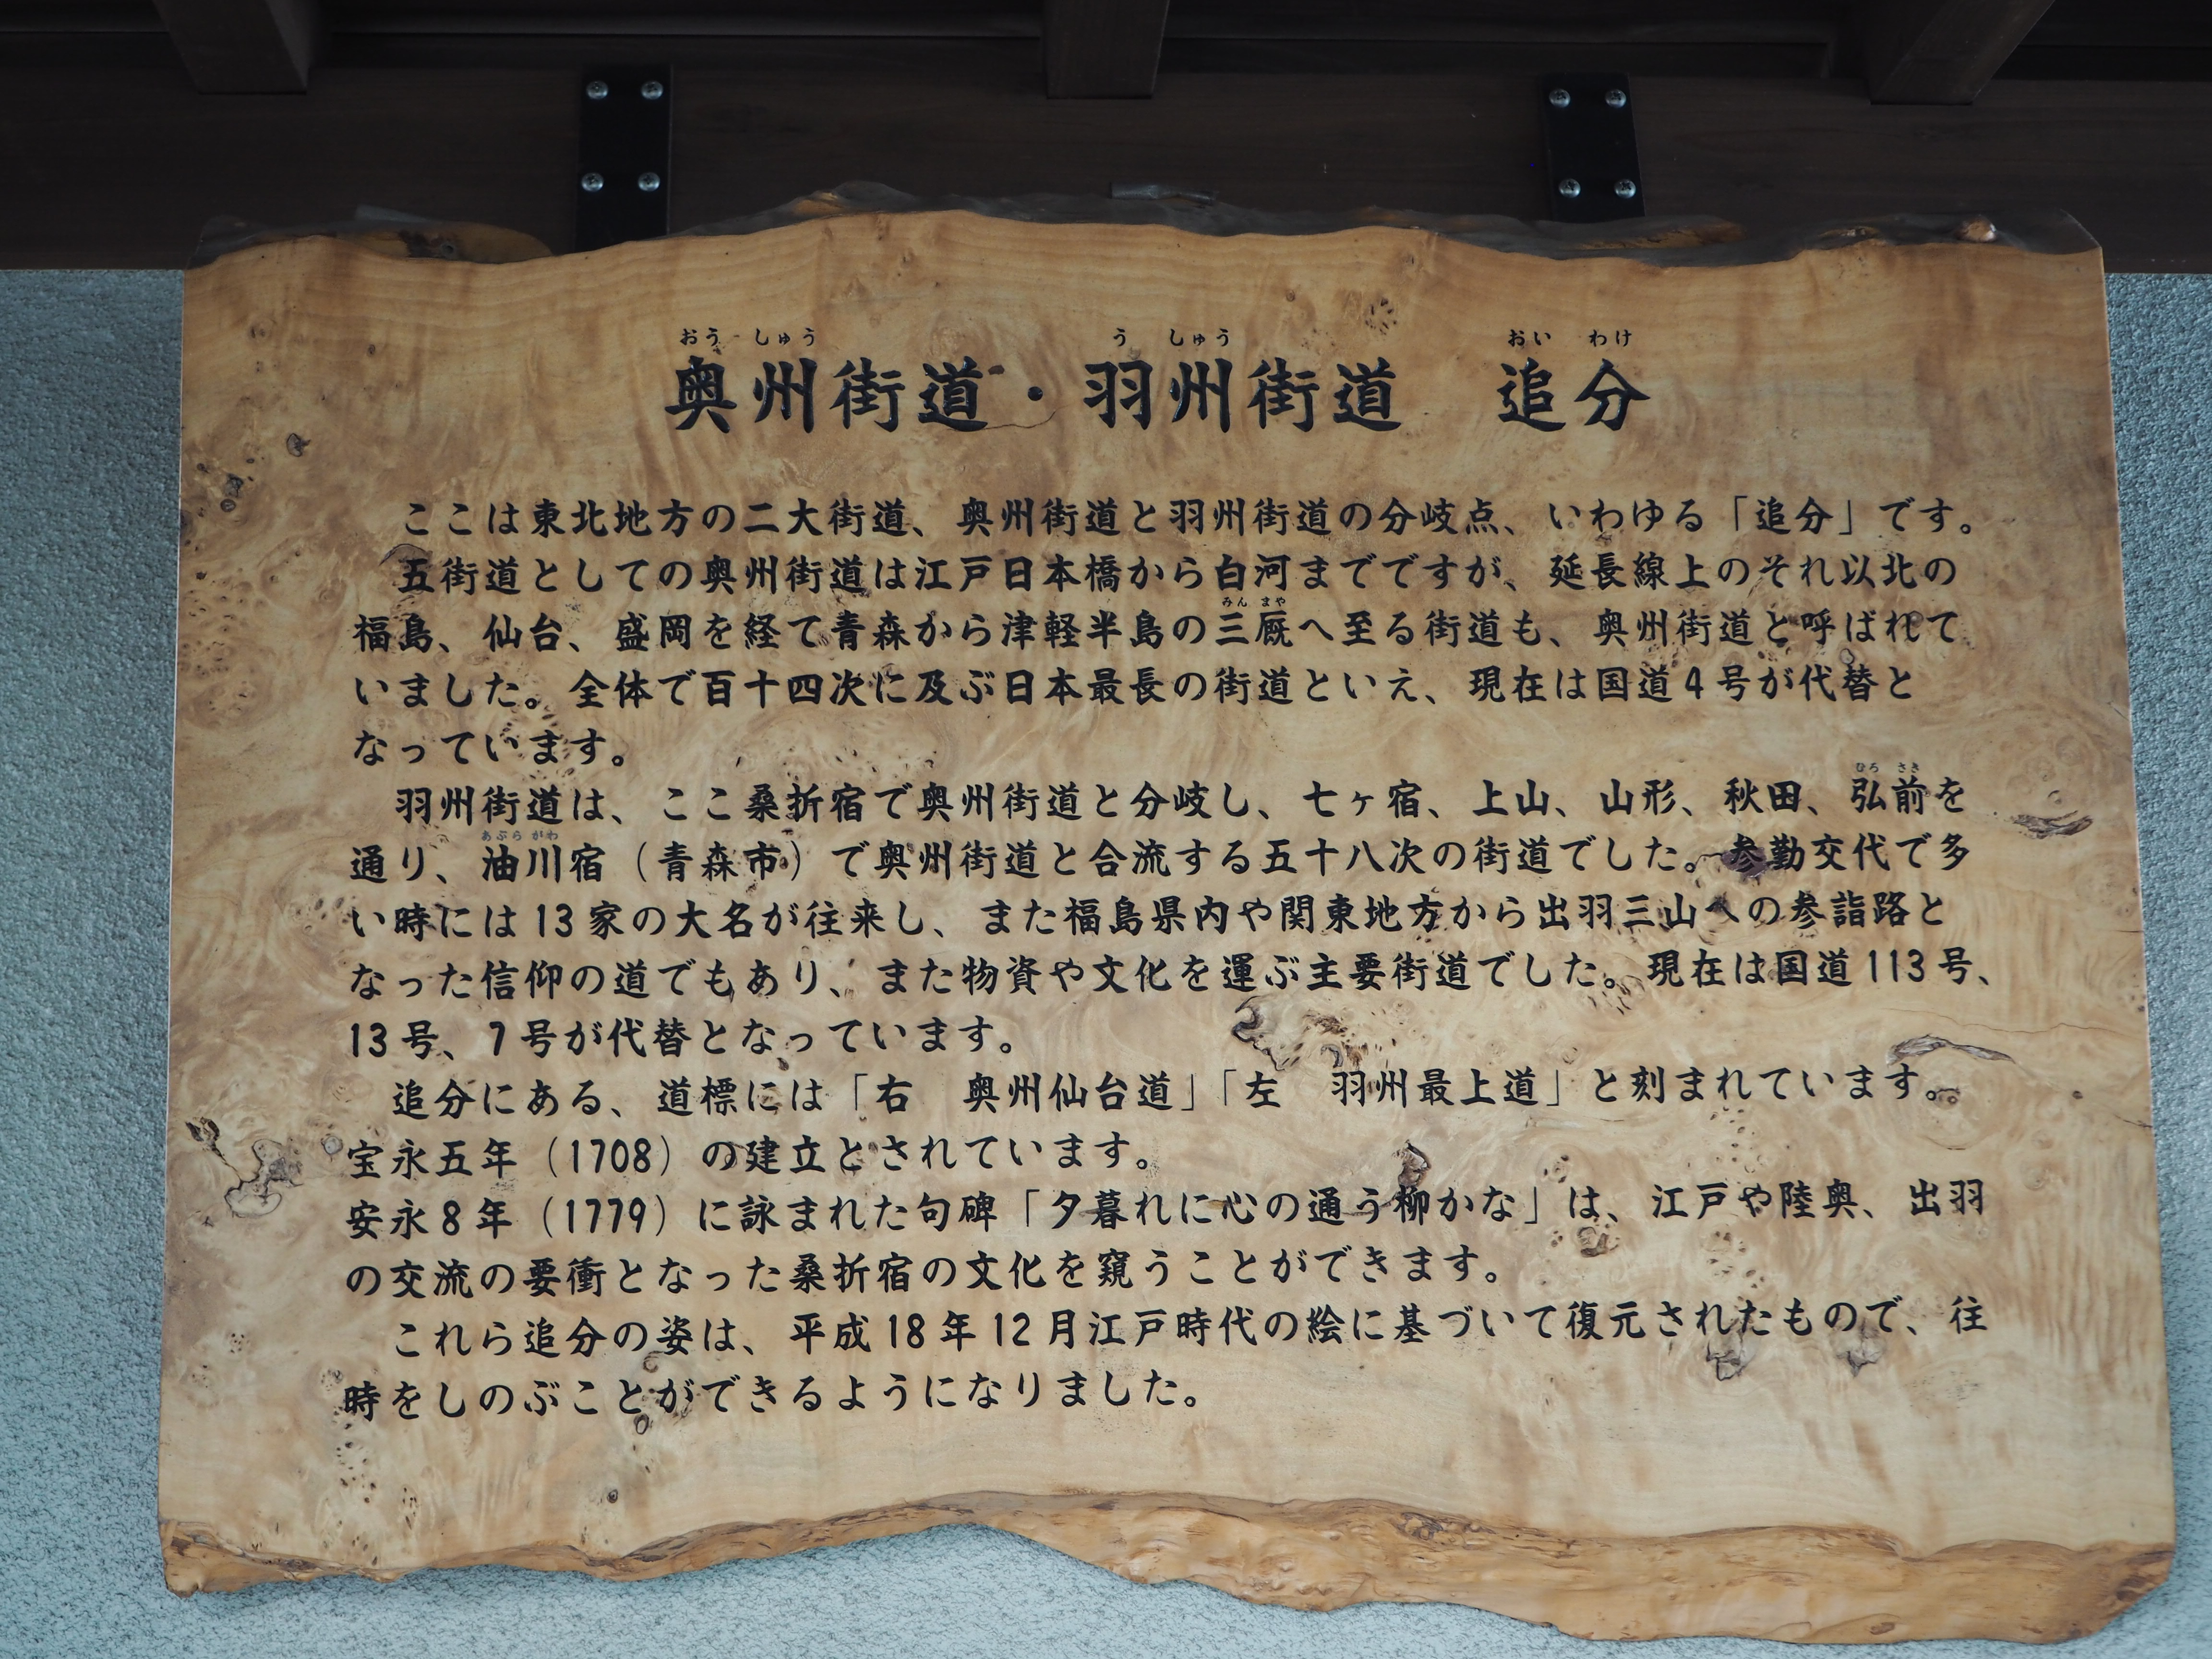 おうしゅう うしゅう おいわけ
奥州街道・羽州街道　追分
ここは東北地方の二大街道、奥州街道と羽州街道の分岐点、いわゆる「追分」です。
五街道としての奥州街道は江戸日本橋から白河までですが、延長線上のそれ以北の
みんまや
福島、仙台、盛岡を経て青森から津軽半島の三厩へ至る街道も、奥州街道と呼ばれて
いました。全体で百十四次に及ぶ日本最長の街道といえ、現在は国道4号が代替と
なっています。
ひろさき
羽州街道は、ここ桑折宿で奥州街道と分岐し、七ヶ宿、上山、山形、秋田、弘前を
あぶらがわ
通り、油川宿（青森市）で奥州街道と合流する五十八次の街道でした。参勤交代で多
い時には13家の大名が往来し、また福島県内や関東地方から出羽三山への参詣路と
なった信仰の道でもあり、また物資や文化を運ぶ主要街道でした。現在は国道113号、
13号、7号が代替となっています。
追分にある、道標には「右　奥州仙台道」「左　羽州最上道」と刻まれています。
宝永五年（1708）の建立とされています。
安永8年（1779）に詠まれた句碑「夕暮れに心の通う柳かな」は、江戸や陸奥、出羽
の交流の要衝となった桑折宿の文化を窺うことができます。
これら追分の姿は、平成18年12月江戸時代の絵に基づいて復元されたもので、往
時をしのぶことができるようになりました。